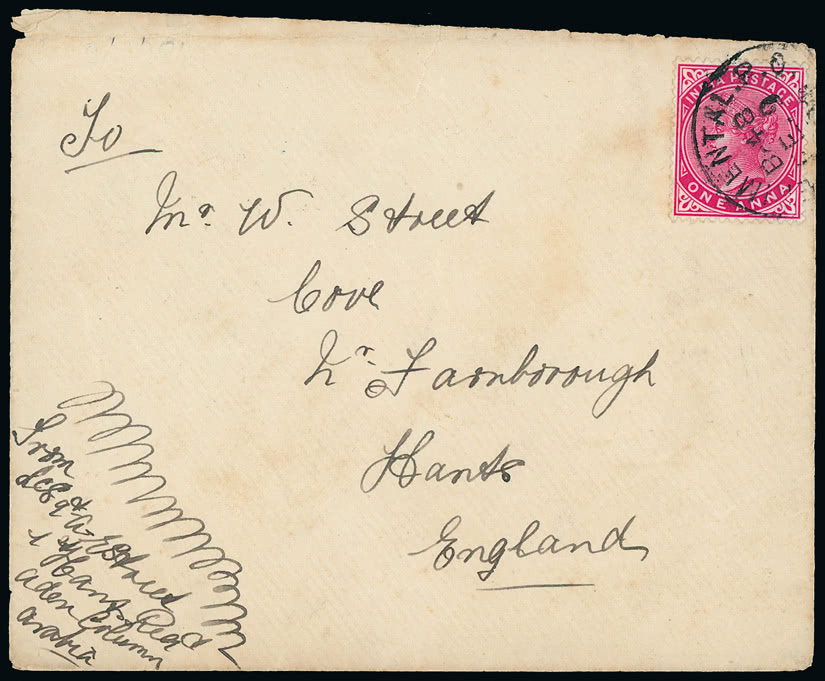 To
Mr. W. Street
Cove
Nr. Farnborough
Hants
England
INDIA POSTAGE
ONE ANNA
MENTAL P.O.
48
B.
From
Street
1 Hans Regt
Aden Column
Arabia